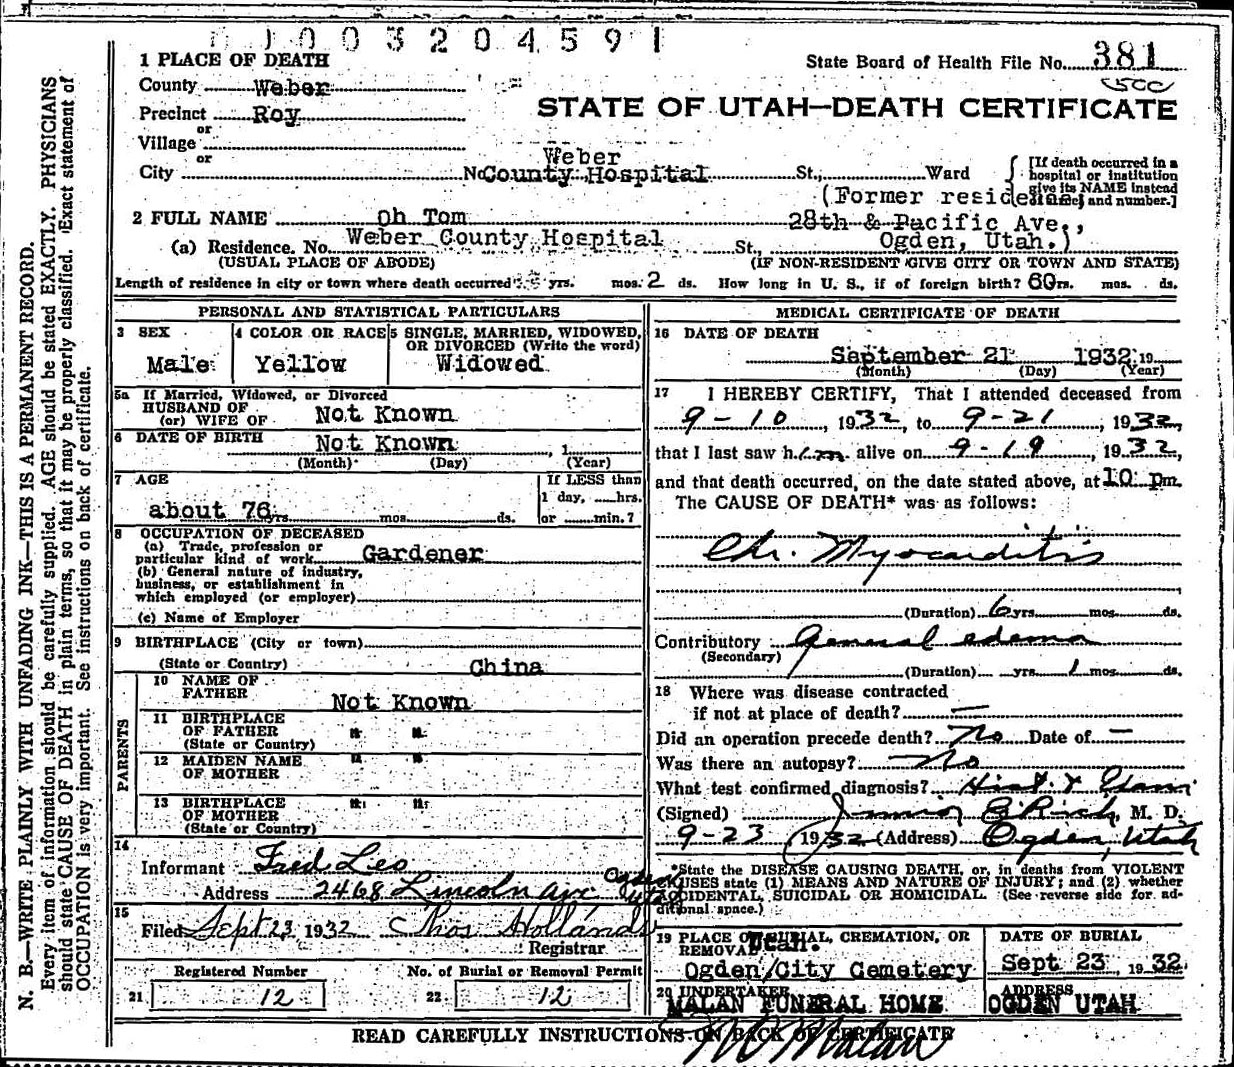 1003204591
1 PLACE OF DEATH
State Board of Health File No. 381
County Weber
STATE OF UTAH—DEATH CERTIFICATE
Precinct Roy
or
Village
or
Weber
City No. County Hospital St., Ward
[If death occurred in a hospital or institution give its NAME instead of street and number.]
(Former residence
2 FULL NAME Oh Tom 28th & Pacific Ave.,
(a) Residence. No. Weber County Hospital St., Ogden, Utah.)
(USUAL PLACE OF ABODE) (IF NON-RESIDENT GIVE CITY OR TOWN AND STATE)
Length of residence in city or town where death occurred yrs. mos. 2 ds. How long in U. S., if of foreign birth? 60 yrs. mos. ds.
PERSONAL AND STATISTICAL PARTICULARS
3 SEX
Male
4 COLOR OR RACE
Yellow
5 SINGLE, MARRIED, WIDOWED, OR DIVORCED (Write the word)
Widowed
5a If Married, Widowed, or Divorced
HUSBAND OF
(or) WIFE OF Not Known
6 DATE OF BIRTH Not Known, 1
(Month) (Day) (Year)
7 AGE
about 76 yrs. mos. ds.
If LESS than
1 day, hrs.
or min.?
8 OCCUPATION OF DECEASED
(a) Trade, profession or
particular kind of work Gardener
(b) General nature of industry,
business, or establishment in
which employed (or employer)
(c) Name of Employer
9 BIRTHPLACE (City or town)
(State or Country) China
PARENTS
10 NAME OF
FATHER Not Known
11 BIRTHPLACE
OF FATHER " "
(State or Country)
12 MAIDEN NAME " "
OF MOTHER
13 BIRTHPLACE " "
OF MOTHER
(State or Country)
14
Informant Fred Leo
Address 2468 Lincoln ave Ogden Utah
15
Filed Sept 23 1932 Thos Holland
Registrar
Registered Number
21 12
No. of Burial or Removal Permit
22 12
MEDICAL CERTIFICATE OF DEATH
16 DATE OF DEATH
September 21 1932 19
(Month) (Day) (Year)
17 I HEREBY CERTIFY, That I attended deceased from
9-10, 1932, to 9-21, 1932,
that I last saw him alive on 9-19, 1932,
and that death occurred, on the date stated above, at 10 pm.
The CAUSE OF DEATH* was as follows:
Chr. Myocarditis
(Duration) 6 yrs. mos. ds.
Contributory General edema
(Secondary)
(Duration) yrs. 1 mos. ds.
18 Where was disease contracted
if not at place of death? —
Did an operation precede death? No Date of —
Was there an autopsy? No
What test confirmed diagnosis? Hist. & Exam
(Signed) Junior E Rich, M. D.
9-23 1932 (Address) Ogden, Utah
*State the DISEASE CAUSING DEATH, or, in deaths from VIOLENT
CAUSES state (1) MEANS AND NATURE OF INJURY; and (2) whether
ACCIDENTAL, SUICIDAL OR HOMICIDAL. (See reverse side for ad-
ditional space.)
19 PLACE OF BURIAL, CREMATION, OR
REMOVAL Utah.
Ogden City Cemetery
DATE OF BURIAL
Sept 23, 1932
20 UNDERTAKER
MALAN FUNERAL HOME
ADDRESS
OGDEN UTAH
READ CAREFULLY INSTRUCTIONS ON BACK OF CERTIFICATE
N. B.—WRITE PLAINLY WITH UNFADING INK—THIS IS A PERMANENT RECORD.
Every item of information should be carefully supplied. AGE should be stated EXACTLY. PHYSICIANS
should state CAUSE OF DEATH in plain terms, so that it may be properly classified. Exact statement of
OCCUPATION is very important. See instructions on back of certificate.